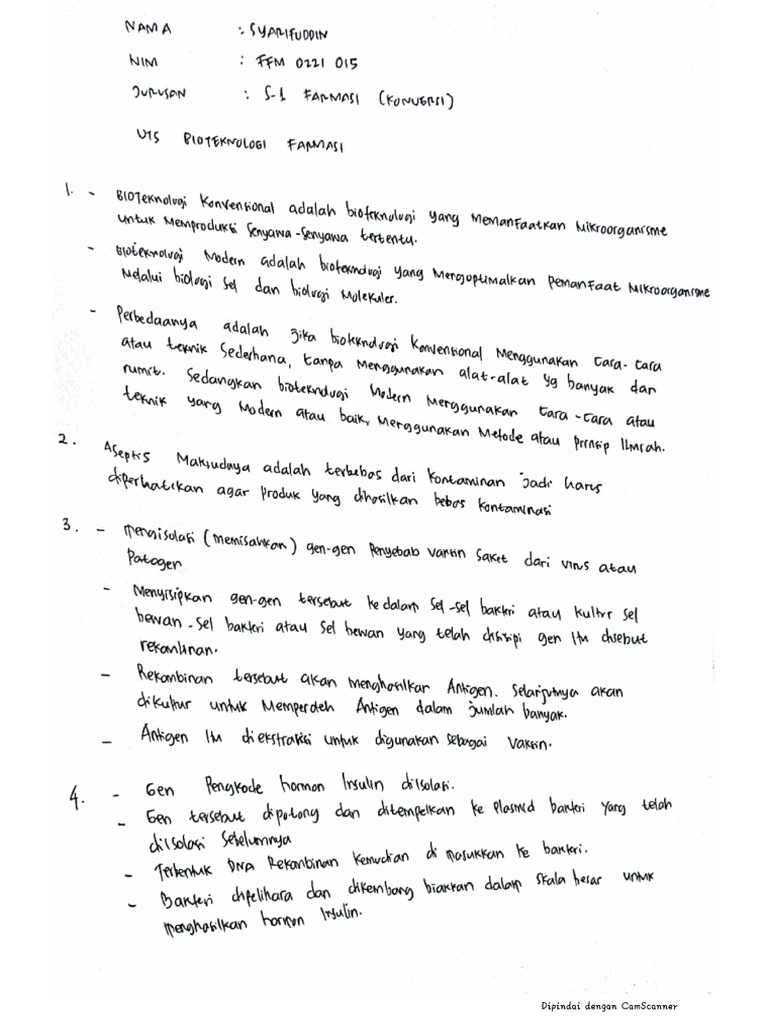 NAMA : SYARIFUDDIN
NIM : FFM 0221 015
JURUSAN : S-1 FARMASI (KONVERSI)
UTS BIOTEKNOLOGI FARMASI
1. - BIOTeknologi Konvensional adalah bioteknologi yang Memanfaatkan Mikroorganisme
untuk Memproduksi Senyawa-Senyawa tertentu.
- Bioteknologi Modern adalah bioteknologi yang Mengoptimalkan Pemanfaat Mikroorganisme
Melalui biologi Sel dan biologi Molekuler.
- Perbedaanya adalah Jika bioteknologi Konvensional Menggunakan Cara-Cara
atau teknik Sederhana, tanpa Menggunakan alat-alat yg banyak dan
rumit. Sedangkan bioteknologi Modern Menggunakan Cara-Cara atau
teknik yang Modern atau baik, Menggunakan Metode atau prinsip Ilmiah.
2. Aseptis Maksudnya adalah terbebas dari kontaminan jadi harus
diperhatikan agar produk yang dihasilkan bebas kontaminasi
3. - Mengisolasi (memisahkan) gen-gen Penyebab vaksin Sakit dari virus atau
Patogen
- Menyisipkan gen-gen tersebut kedalam sel-sel bakteri atau kultur sel
hewan - Sel bakteri atau sel hewan yang telah disisipi gen Itu disebut
rekombinan.
- Rekombinan tersebut akan menghasilkan Antigen. Selanjutnya akan
dikultur untuk Memperoleh Antigen dalam jumlah banyak.
- Antigen Itu diekstraksi untuk digunakan sebagai Vaksin.
4. - Gen Pengkode hormon Insulin diIsolasi.
- Gen tersebut dipotong dan ditempelkan ke Plasmid bakteri yang telah
diIsolasi Sebelumnya
- Terbentuk DNA Rekombinan kemudian di masukkan ke bakteri.
- Bakteri dipelihara dan dikembang biakkan dalam skala besar untuk
menghasilkan hormon Insulin.
Dipindai dengan CamScanner